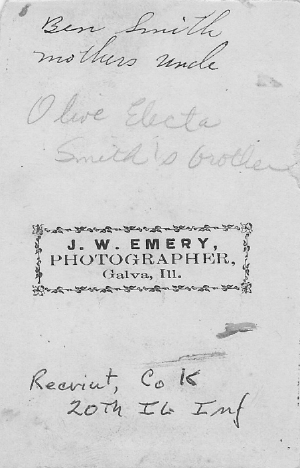 Ben Smith
mothers uncle
Olive Electa
Smith's brother
J. W. EMERY,
PHOTOGRAPHER,
Galva, Ill.
Recruit, Co K
20th Ill Inf